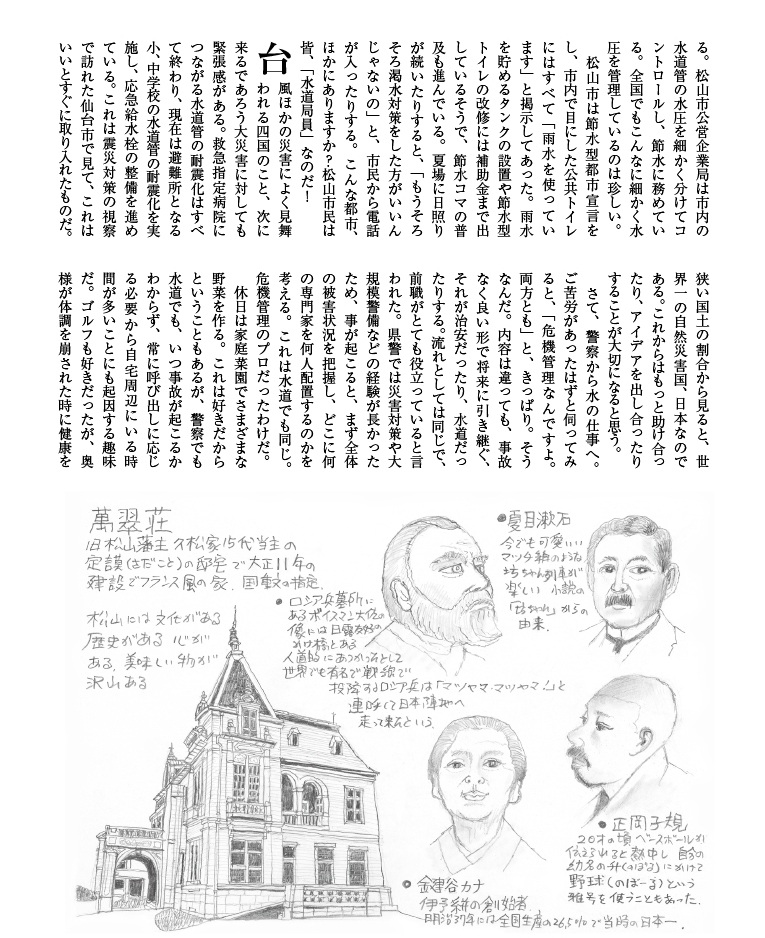 る。松山市公営企業局は市内の
水道管の水圧を細かく分けてコ
ントロールし、節水に務めてい
る。全国でもこんなに細かく水
圧を管理しているのは珍しい。
松山市は節水型都市宣言を
し、市内で目にした公共トイレ
にはすべて「雨水を使ってい
ます」と掲示してあった。雨水
を貯めるタンクの設置や節水型
トイレの改修には補助金まで出
しているそうで、節水コマの普
及も進んでいる。夏場に日照り
が続いたりすると、「もうそろ
そろ渇水対策をした方がいいん
じゃないの」と、市民から電話
が入ったりする。こんな都市、
ほかにありますか？松山市民は
皆、「水道局員」なのだ！
台風ほかの災害によく見舞
われる四国のこと、次に
来るであろう大災害に対しても
緊張感がある。救急指定病院に
つながる水道管の耐震化はすべ
て終わり、現在は避難所となる
小、中学校の水道管の耐震化を実
施し、応急給水栓の整備を進め
ている。これは震災対策の視察
で訪れた仙台市で見て、これは
いいとすぐに取り入れたものだ。
狭い国土の割合から見ると、世
界一の自然災害国、日本なので
ある。これからはもっと助け合っ
たり、アイデアを出し合ったり
することが大切になると思う。
さて、警察から水の仕事へ。
ご苦労があったはずと伺ってみ
ると、「危機管理なんですよ。
両方とも」と、きっぱり。そう
なんだ。内容は違っても、事故
なく良い形で将来に引き継ぐ、
それが治安だったり、水道だっ
たりする。流れとしては同じで、
前職がとても役立っていると言
われた。県警では災害対策や大
規模警備などの経験が長かった
ため、事が起こると、まず全体
の被害状況を把握し、どこに何
の専門家を何人配置するのかを
考える。これは水道でも同じ。
危機管理のプロだったわけだ。
休日は家庭菜園でさまざまな
野菜を作る。これは好きだから
ということもあるが、警察でも
水道でも、いつ事故が起こるか
わからず、常に呼び出しに応じ
る必要から自宅周辺にいる時
間が多いことにも起因する趣味
だ。ゴルフも好きだったが、奥
様が体調を崩された時に健康を
萬翠荘
旧松山藩主久松家15代当主の
定謨(さだこと)の邸宅で大正11年の
建設でフランス風の家、国重文の指定
松山には文化がある
歴史がある 心が
ある、美味しい物が
沢山ある
●ロシア兵墓所に
あるボイスマン大佐の
像には日露友好の
かけ橋とある
人道的にあつかったとして
世界でも有名で戦線で
投降するロシア兵は「マツヤマ・マツヤマ！」と
連呼して日本陣地へ
走って来たという。
●夏目漱石
今でも可愛いい
マッチ箱のような
坊ちゃん列車が
楽しい 小説の
「坊ちゃん」からの
由来.
●正岡子規
20才の頃ベースボールが
伝えられると熱中し 自分の
幼名の升(のぼる)にかけて
野球(のぼーる)という
雅号を使うこともあった.
●金建谷カナ
伊予絣の創始者
明治37年には全国生産の26.5%で当時の日本一.